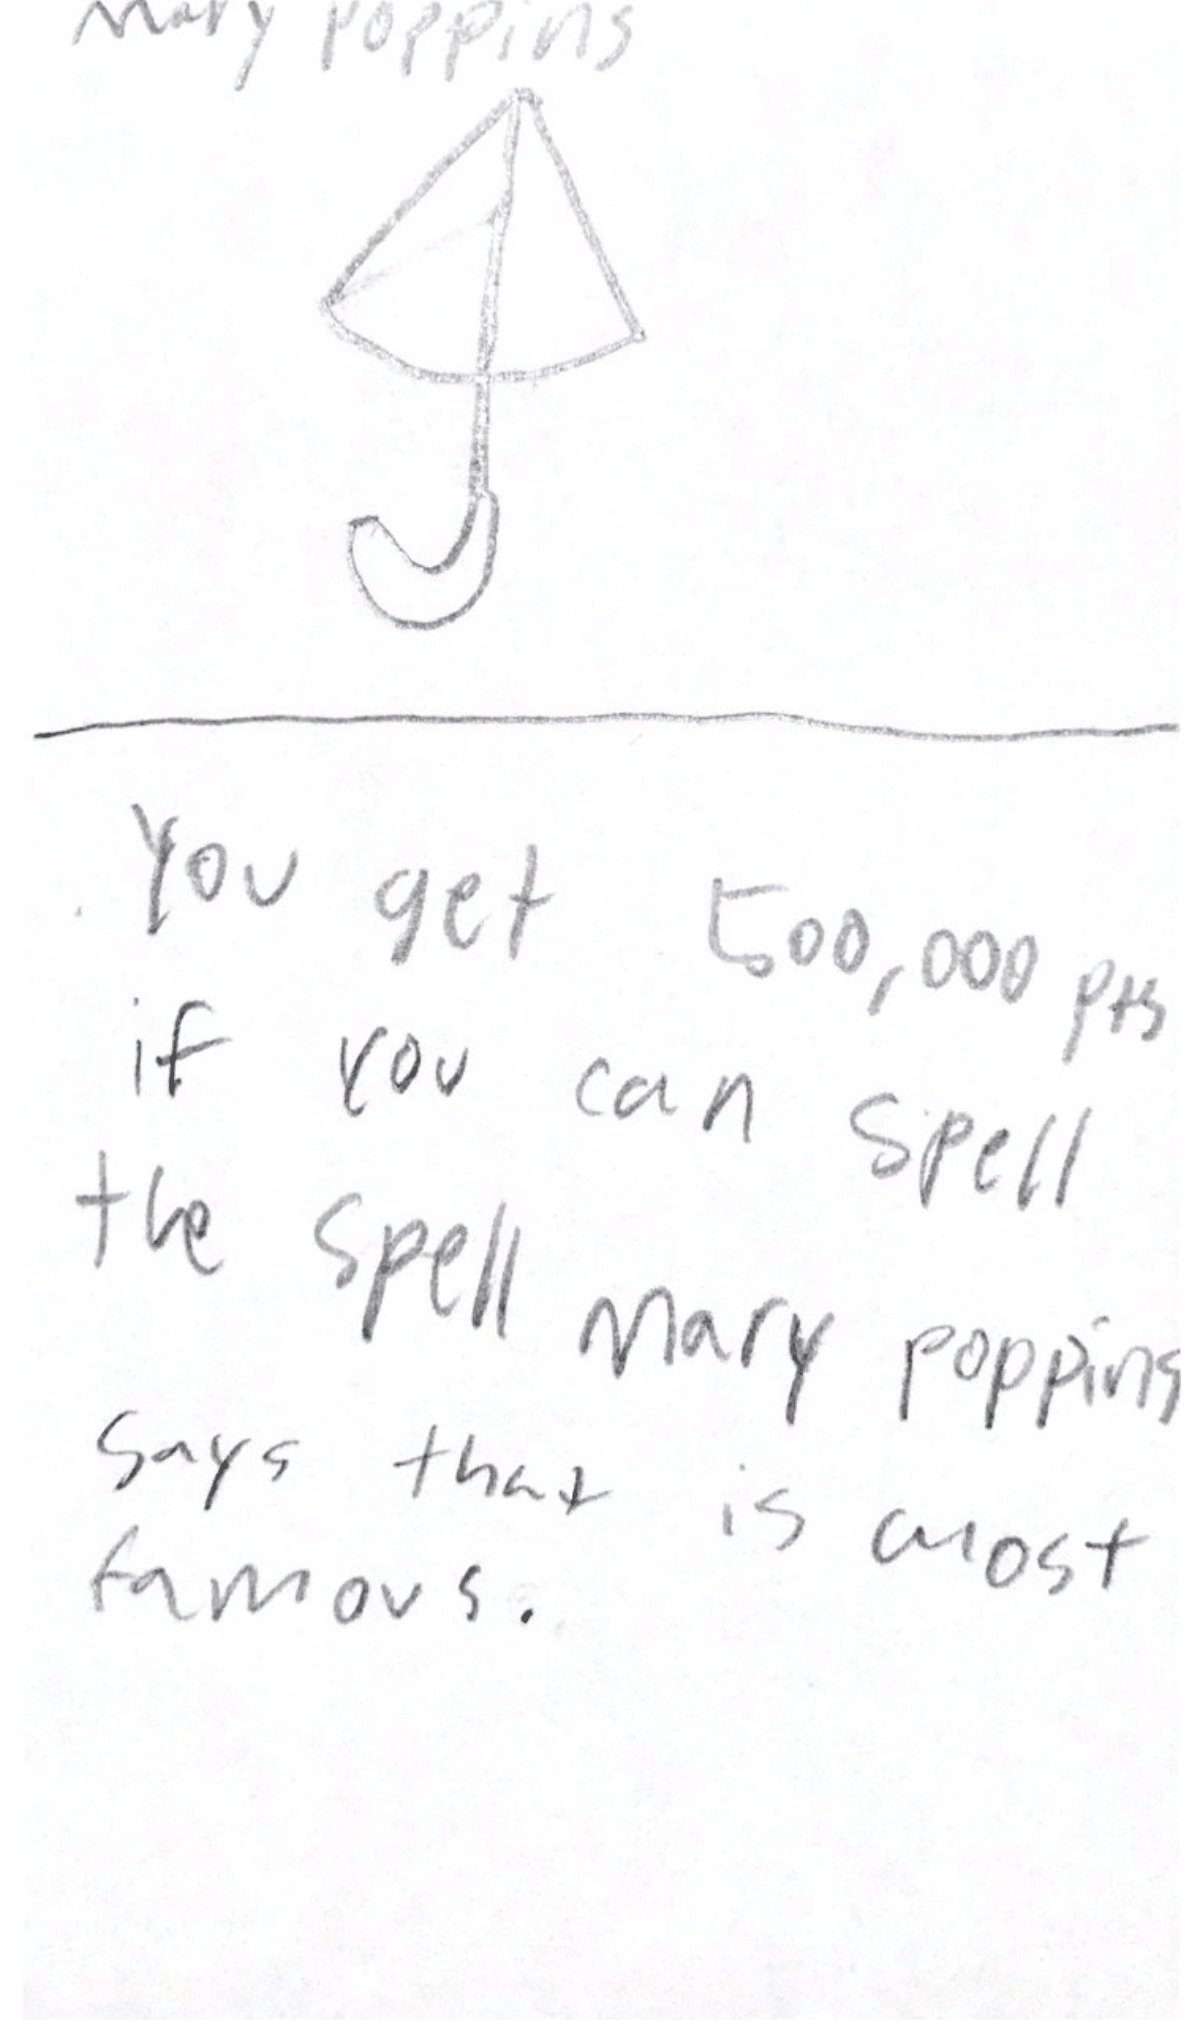 Mary poppins
You get 500,000 pts
if you can spell
the spell Mary poppins
says that is most
famous.